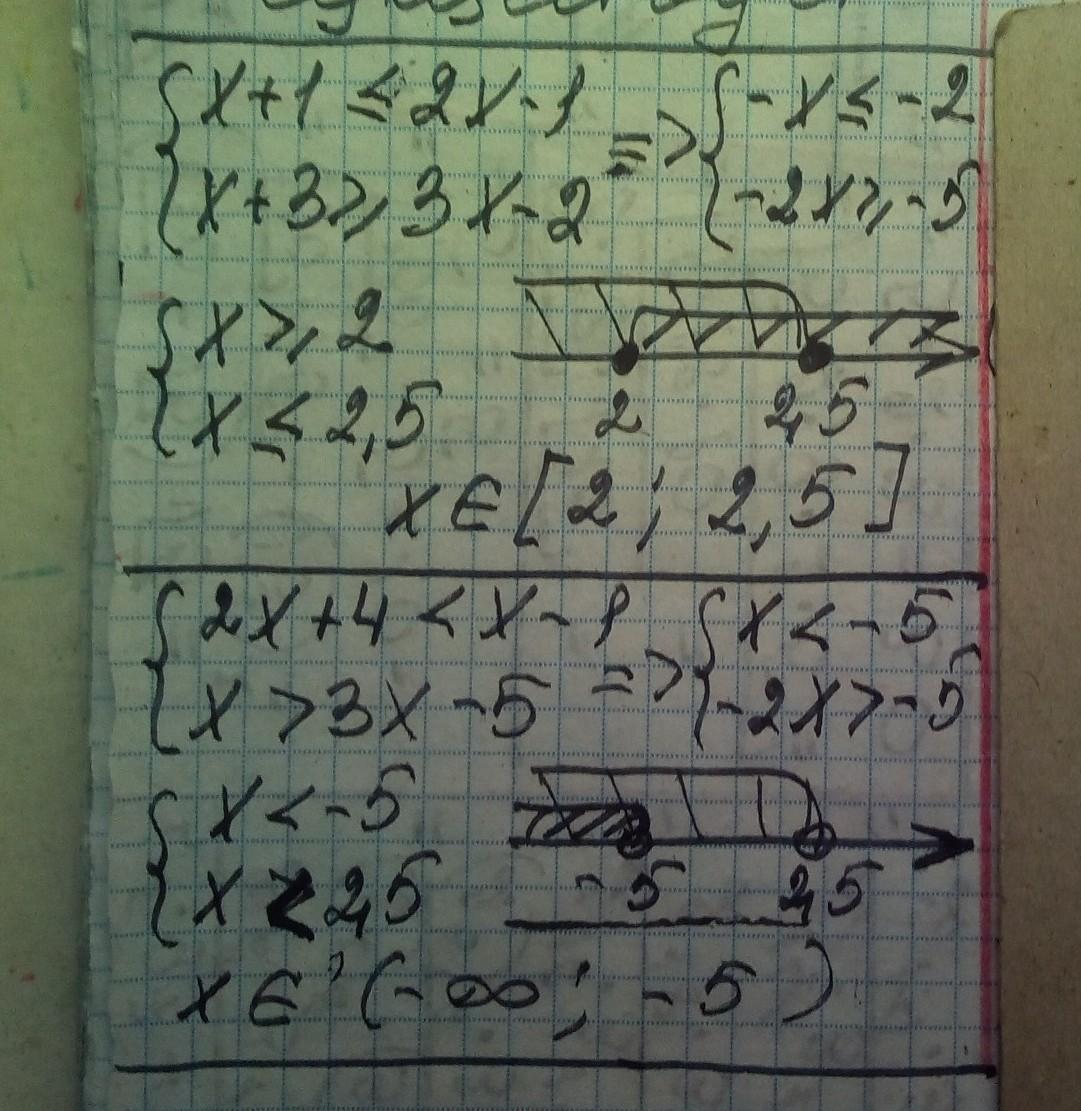 { x+1 ≤ 2x-1 => { -x ≤ -2
{ x+3 ≥ 3x-2 { -2x ≥ -5
{ x ≥ 2
{ x ≤ 2,5 2 2,5
x ∈ [2; 2,5]
{ 2x+4 < x-1 => { x < -5
{ x > 3x-5 { -2x > -5
{ x < -5
{ x < 2,5 -5 2,5
x ∈ (-∞; -5)